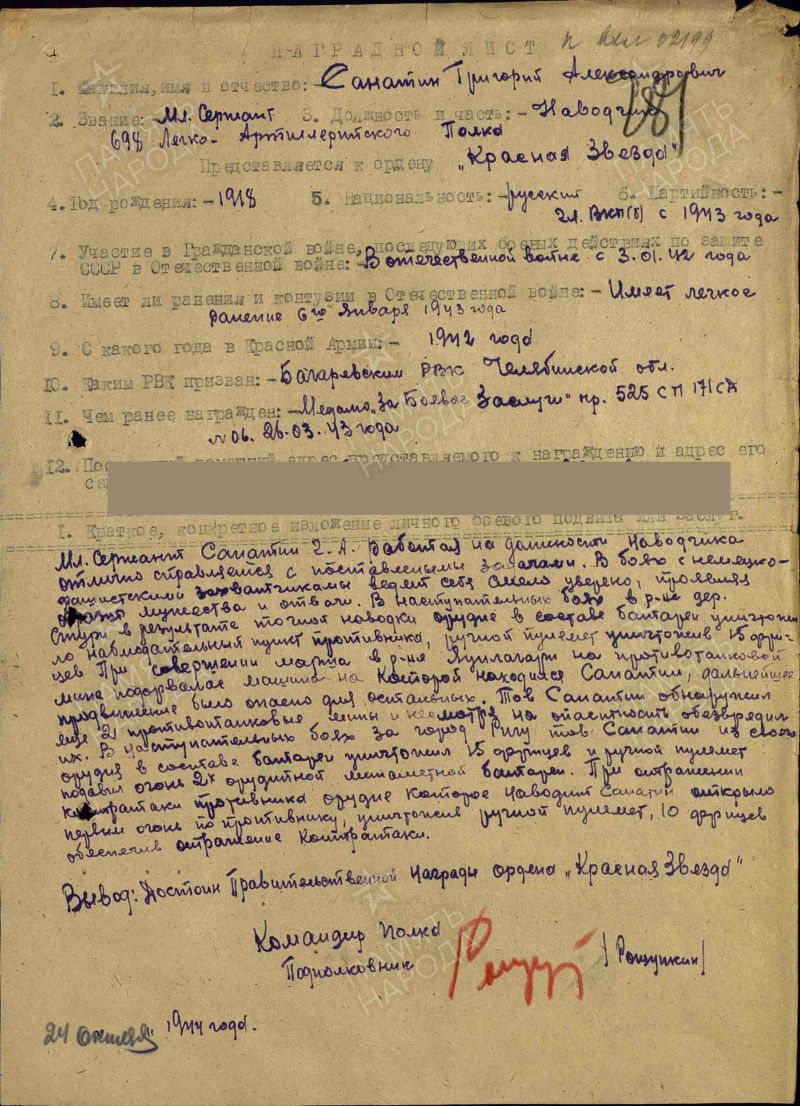 НАГРАДНОЙ ЛИСТ
1. Фамилия, имя и отчество: - Санатин Григорий Александрович
2. Звание: - Мл. Сержант 3. Должность и часть: - Наводчик
698 Легко-Артиллеритского Полка
Представляется к ордену „Красная Звезда"
4. Год рождения: - 1918 5. Национальность: - русский 6. Партийность: -
чл. ВКП(б) с 1943 года
7. Участие в Гражданской войне, последующих боевых действиях по защите
СССР в Отечественной войне: - В отечественной войне с 3.01.42 года
8. Имеет ли ранения и контузии в Отечественной войне: - Имеет легкое
ранение 6го Января 1943 года
9. С какого года в Красной Армии: - 1942 года
10. Каким РВК призван: - Багаревским РВК Челябинской обл.
11. Чем ранее награжден: - Медалью „За Боевые Заслуги" пр. 525 СП 171 СД
№06. 26.03.43 года
12. домашний адрес представляемого к награждению и адрес его
1. Краткое, конкретное изложение личного боевого подвига или заслуг.
Мл. Сержант Санатин Г. А. Работая на должности Наводчика
отлично справляется с поставлеными задачами. В боях с немецко-
фашистскими захватчиками ведет себя смело уверено, проявляя
образцы мужества и отваги. В наступательных боях в р-не дер.
Стури в результате точной наводки орудие в составе батареи уничтожи
ло наблюдательный пункт противника, ручной пулемет уничтожив 15 фри-
цев При совершении марша в р-не на противотанковой
мине подорвалас машина на Которой находился Санатин, дальнейшее
продвижение было опасно для остальных. Тов Санатин обнаружил
еще 2 противотанковые мины и несмотря на опастность обезвредил
их. В наступательных боях за город Ригу тов Санатин из своего
орудия в составе батареи уничтожил 15 фрицев и ручной пулемет
подавил огонь 2х орудитной минаметной батареи. При отражении
контратаки противника орудие которое наводит Санатин открыло
первым огонь по противнику, уничтожив ручной пулемет, 10 фрицев
обеспечив отражение Контратаки.
Вывод: Достоин Правительственной Награды ордена „Красная Звезда"
Командир Полка
Подполковник / Рощупкин /
24 Октября 1944 года.
ПАМЯТЬ НАРОДА